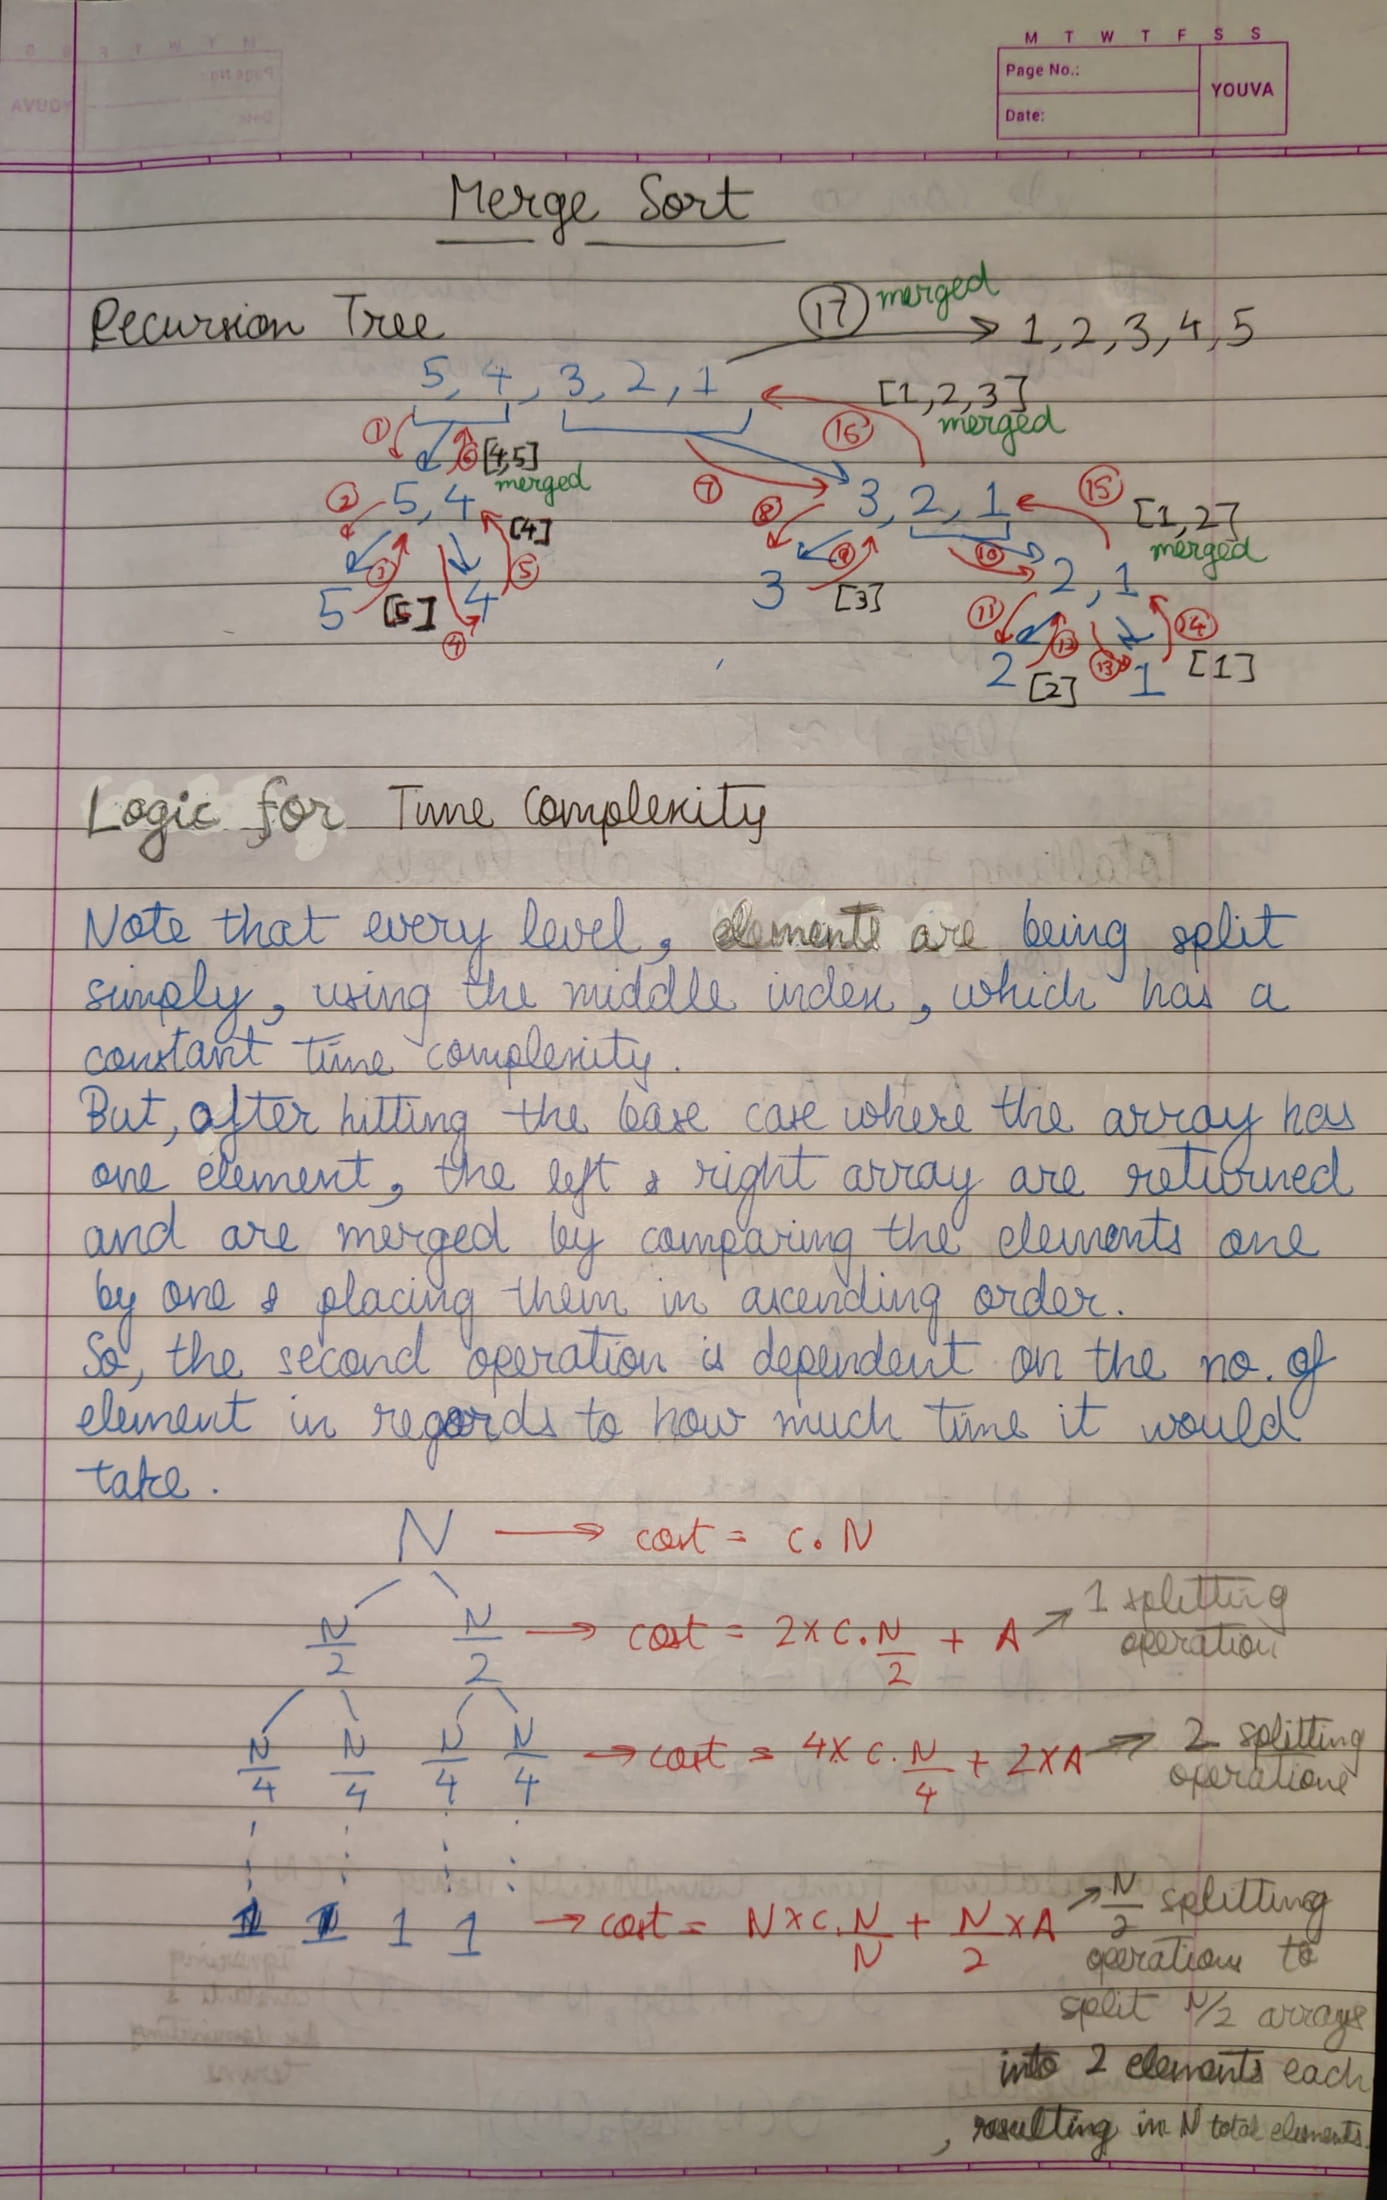 M T W T F S S
Page No.:
YOUVA
Date:
Merge Sort
Recursion Tree
17 merged
1, 2, 3, 4, 5
5, 4, 3, 2, 1
[1, 2, 3]
merged
1 6 [4,5]
merged
16
2 5, 4
7
8 3, 2, 1
15
[1, 2]
merged
[4]
3 5
9 10
5 [5] 4
3 [3]
2, 1
4
11 12 13 14
2 [2] 1 [1]
Logic for Time Complexity
Note that every level, elements are being split
simply, using the middle index, which has a
constant time complexity.
But, after hitting the base case where the array has
one element, the left & right array are returned
and are merged by comparing the elements one
by one & placing them in ascending order.
So, the second operation is dependent on the no. of
element in regards to how much time it would
take.
N → cost = c.N
N/2 N/2 → cost = 2 x c.N/2 + A ↗ 1 splitting
operation
N/4 N/4 N/4 N/4 → cost = 4 x c.N/4 + 2 x A → 2 splitting
operations
1 1 1 1 → cost = N x c.N/N + N/2 x A ↗ N/2 splitting
operations to
split N/2 arrays
into 2 elements each
, resulting in N total elements.